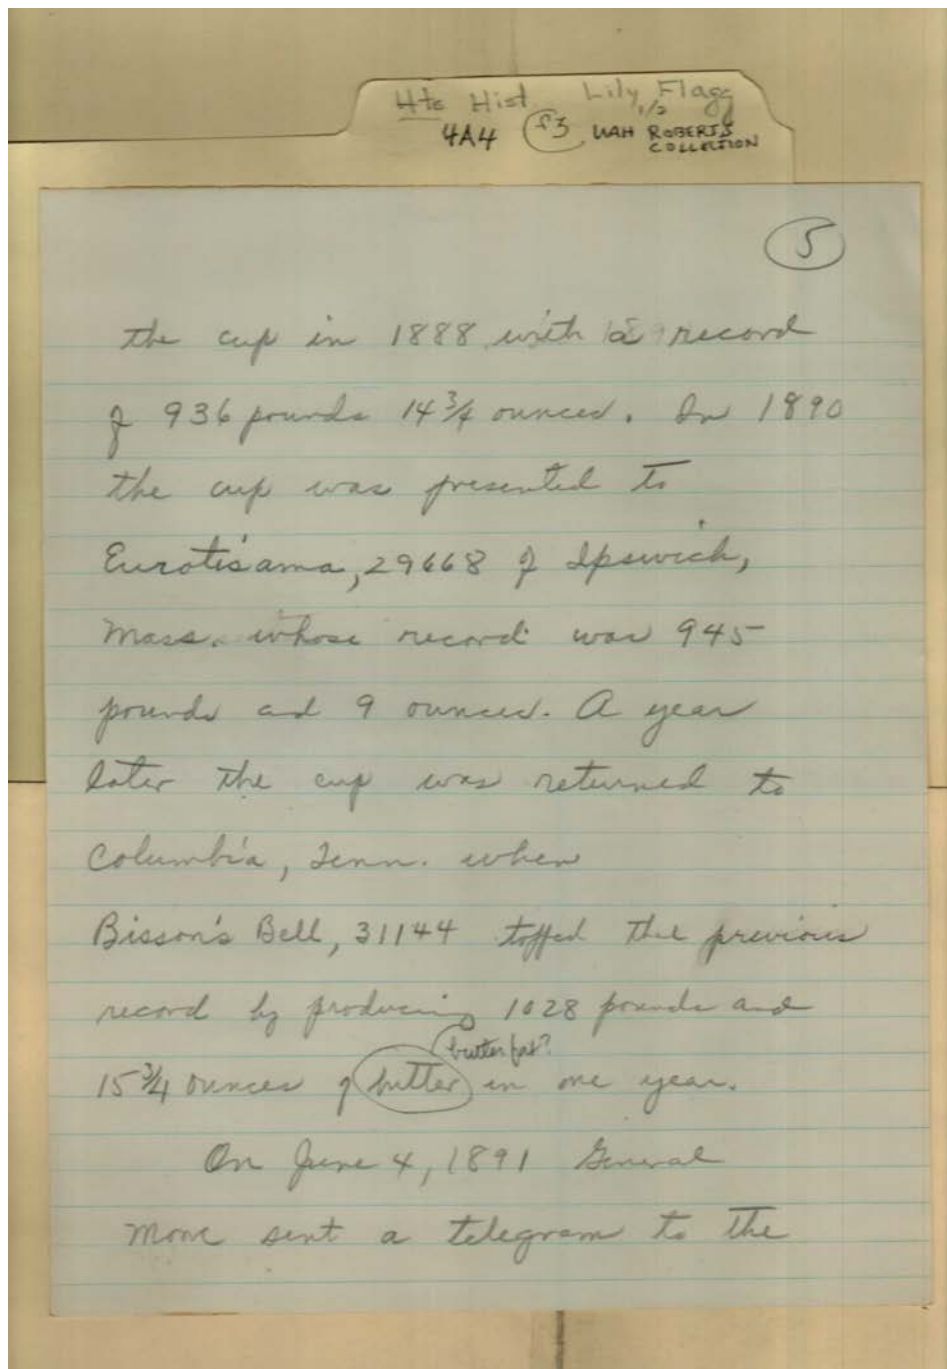 Hts Hist Lily Flagg
1/2
4A4 f3 UAH ROBERTS
COLLECTION
5
the cup in 1888 with a record
of 936 pounds 14 3/4 ounces. In 1890
the cup was presented to
Eurotisama, 29668 of Ipswich,
Mass. whose record was 945
pounds and 9 ounces. A year
later the cup was returned to
Columbia, Tenn. when
Bisson's Bell, 31144 topped the previous
record by producing 1028 pounds and
butter fat?
15 3/4 ounces of butter in one year.
On June 4, 1891 General
Moore sent a telegram to the